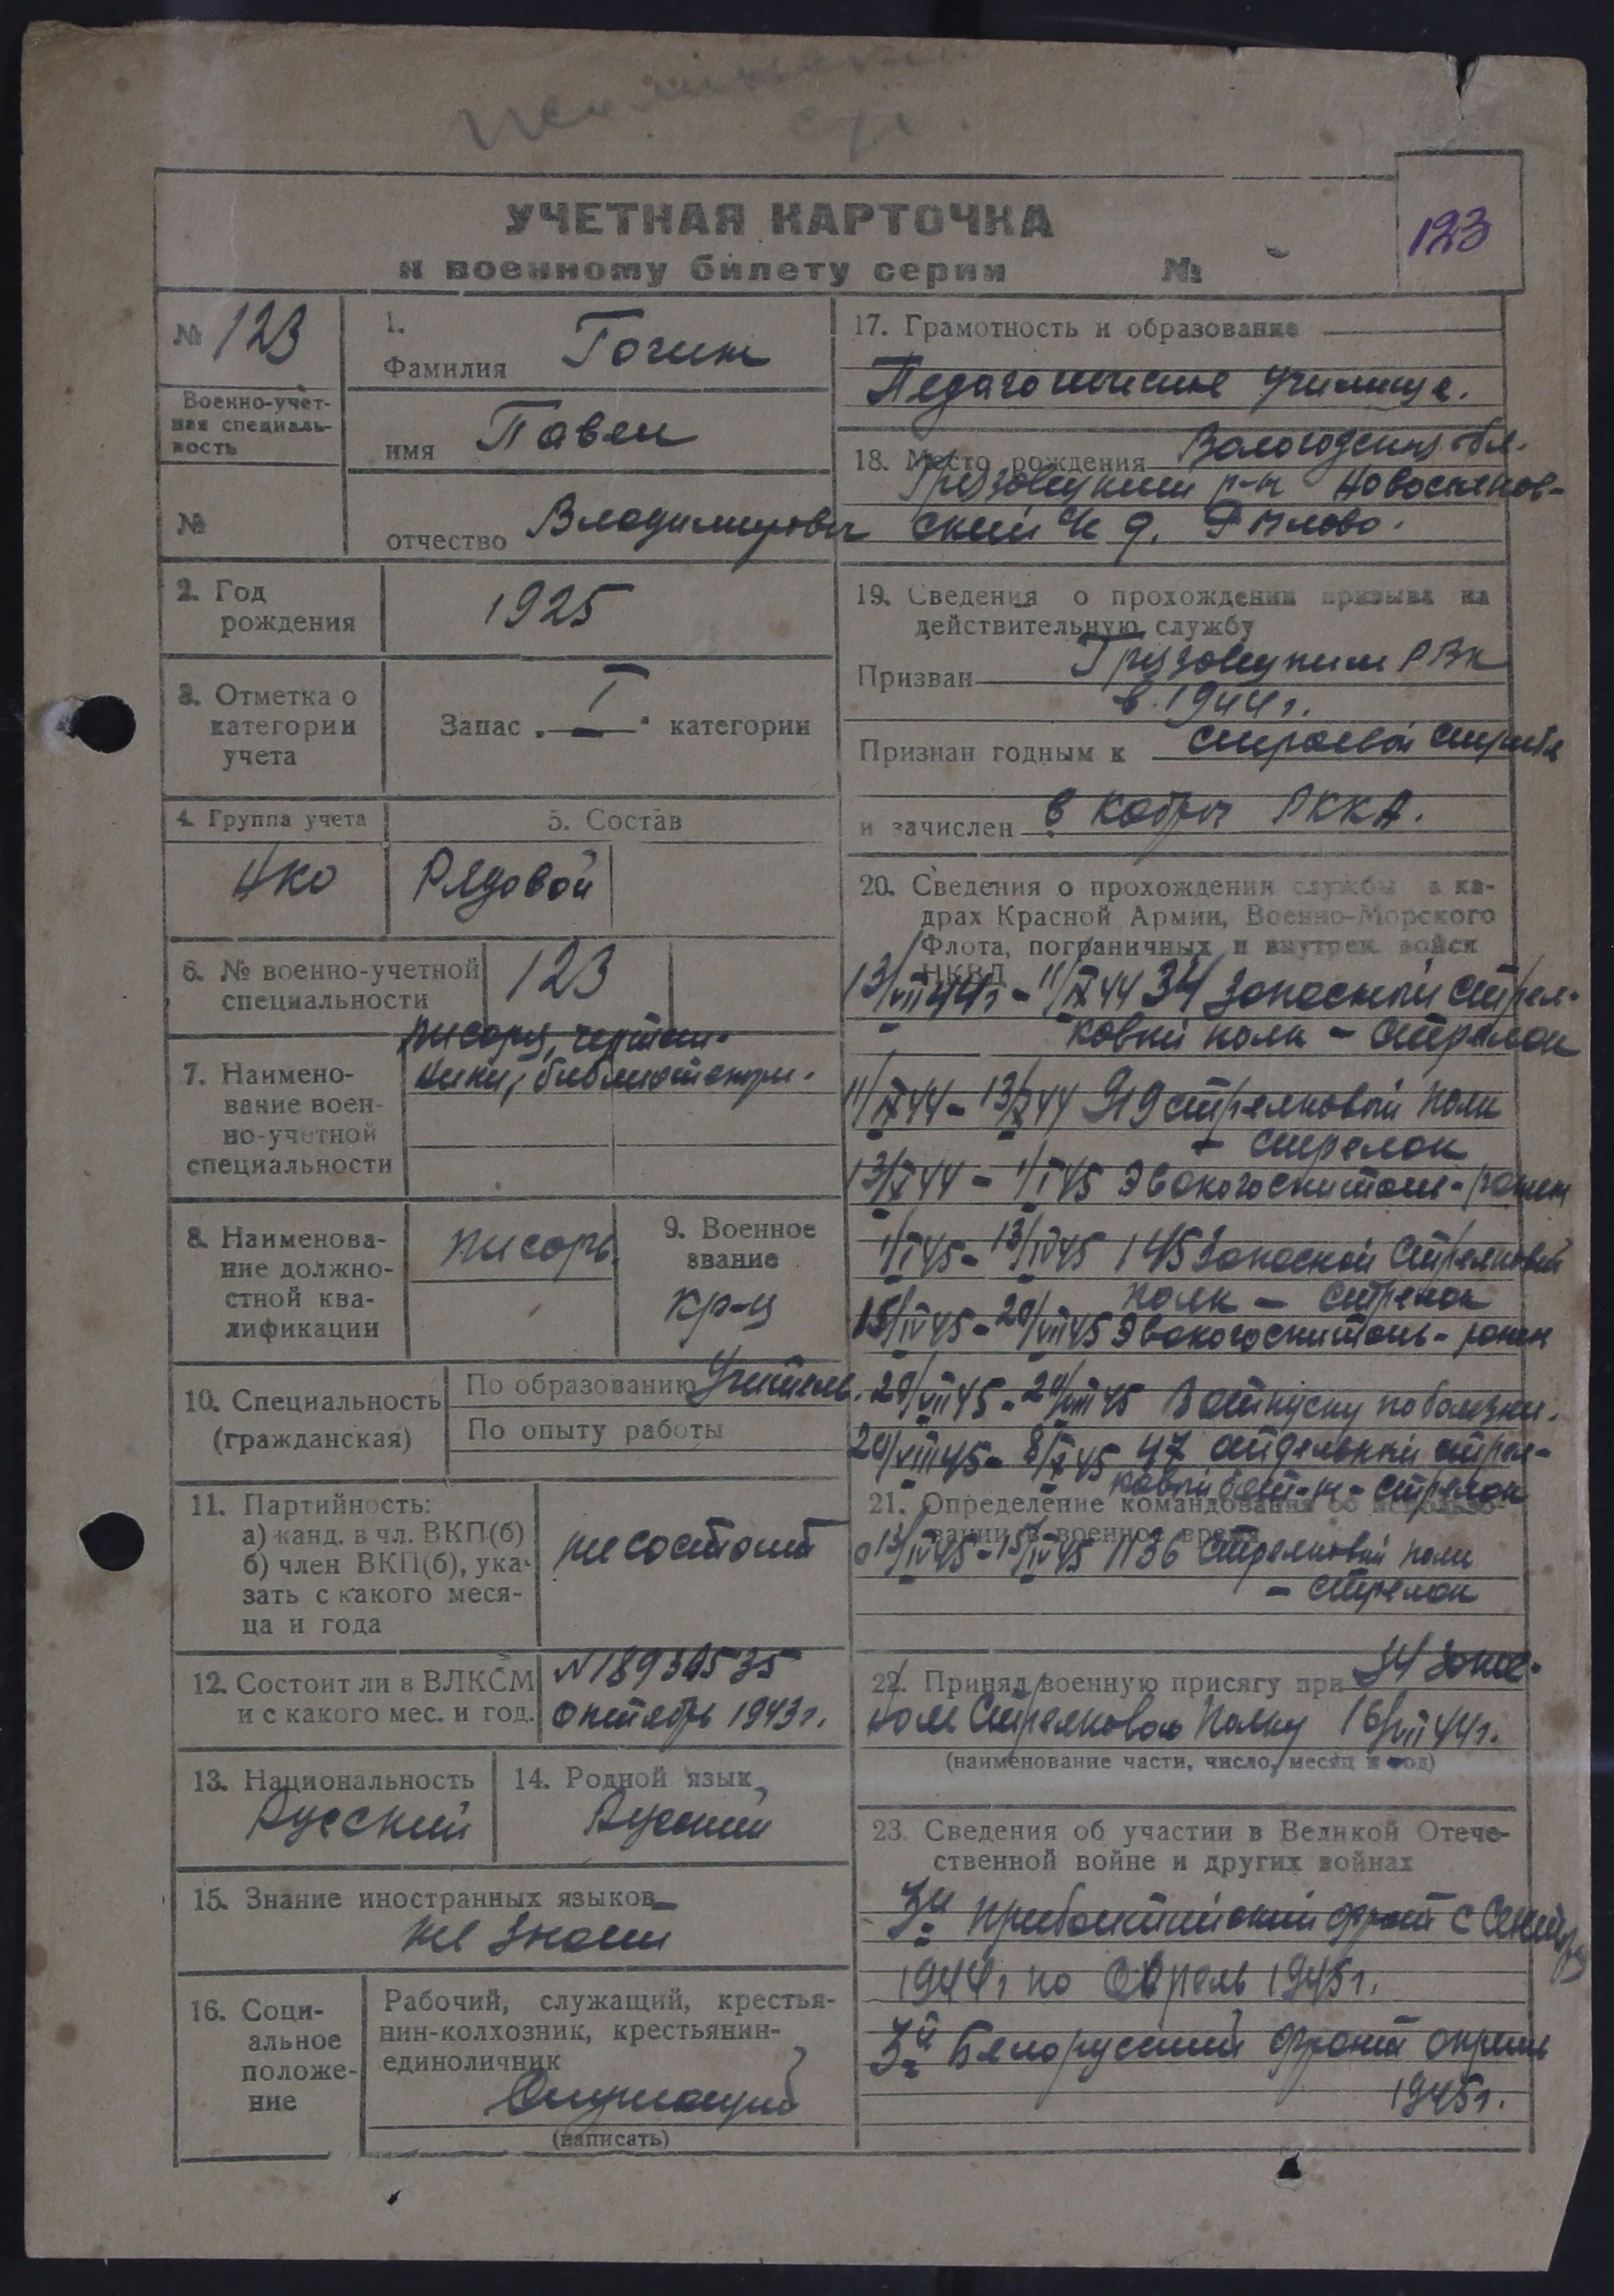 УЧЕТНАЯ КАРТОЧКА
к военному билету серии №
123
№ 123
Военно-учет-
ная специаль-
ность
№
1.
Фамилия Гогин
имя Павел
отчество Владимирович
2. Год
рождения
1925
3. Отметка о
категории
учета
Запас I категории
4. Группа учета
НКО
5. Состав
Рядовой
6. № военно-учетной
специальности
123
7. Наимено-
вание воен-
но-учетной
специальности
писаря, чертеж-
ники, библиотекари.
8. Наименова-
ние должно-
стной ква-
лификации
писарь.
9. Военное
звание
кр-ц
10. Специальность
(гражданская)
По образованию Учитель.
По опыту работы
11. Партийность:
а) канд. в чл. ВКП(б)
б) член ВКП(б), ука-
зать с какого меся-
ца и года
не состоит
12. Состоит ли в ВЛКСМ
и с какого мес. и год.
октябрь 1943 г.
13. Национальность
Русский
14. Родной язык
Русский
15. Знание иностранных языков
не знает
16. Соци-
альное
положе-
ние
Рабочий, служащий, крестья-
нин-колхозник, крестьянин-
единоличник
Служащий
(написать)
17. Грамотность и образование
Педагогическое училище.
18. Место рождения Вологодская обл.
Грязовецкий р-н
ский д.
19. Сведения о прохождении призыва на
действительную службу
Призван Грязовецким РВК
в 1944 г.
Признан годным к строевой службе
и зачислен в кадры РККА.
20. Сведения о прохождении службы в ка-
драх Красной Армии, Военно-Морского
Флота, пограничных и внутрен. войск
НКВД
13/VII 44 г - 11/IX 44 34 запасный стрел-
ковый полк - стрелок
11/IX 44 - 13/X 44 919 стрелковый полк
- стрелок
13/X 44 - 1/I 45 Эвакогоспиталь - ранен
1/I 45 - 13/IV 45 145 Запасной Стрелковый
полк - стрелок
15/IV 45 - 20/VII 45 Эвакогоспиталь - ранен
20/VII 45 - 20/VIII 45 В отпуску по болезни.
20/VIII 45 - 8/X 45 47 отдельный стрел-
ковый бат-н - стрелок
21. Определение командования об использо-
вании в военное время
с 13/IV 45 - 15/IV 45 1136 Стрелковый полк
- стрелок
22. Принял военную присягу при 34 запас-
ном Стрелковом Полку 16/VII 44 г.
(наименование части, число, месяц и год)
23. Сведения об участии в Великой Отече-
ственной войне и других войнах
3й Прибалтийский фронт с Сентября
1944 г по Апрель 1945 г.
3й Белорусский фронт апрель
1945 г.